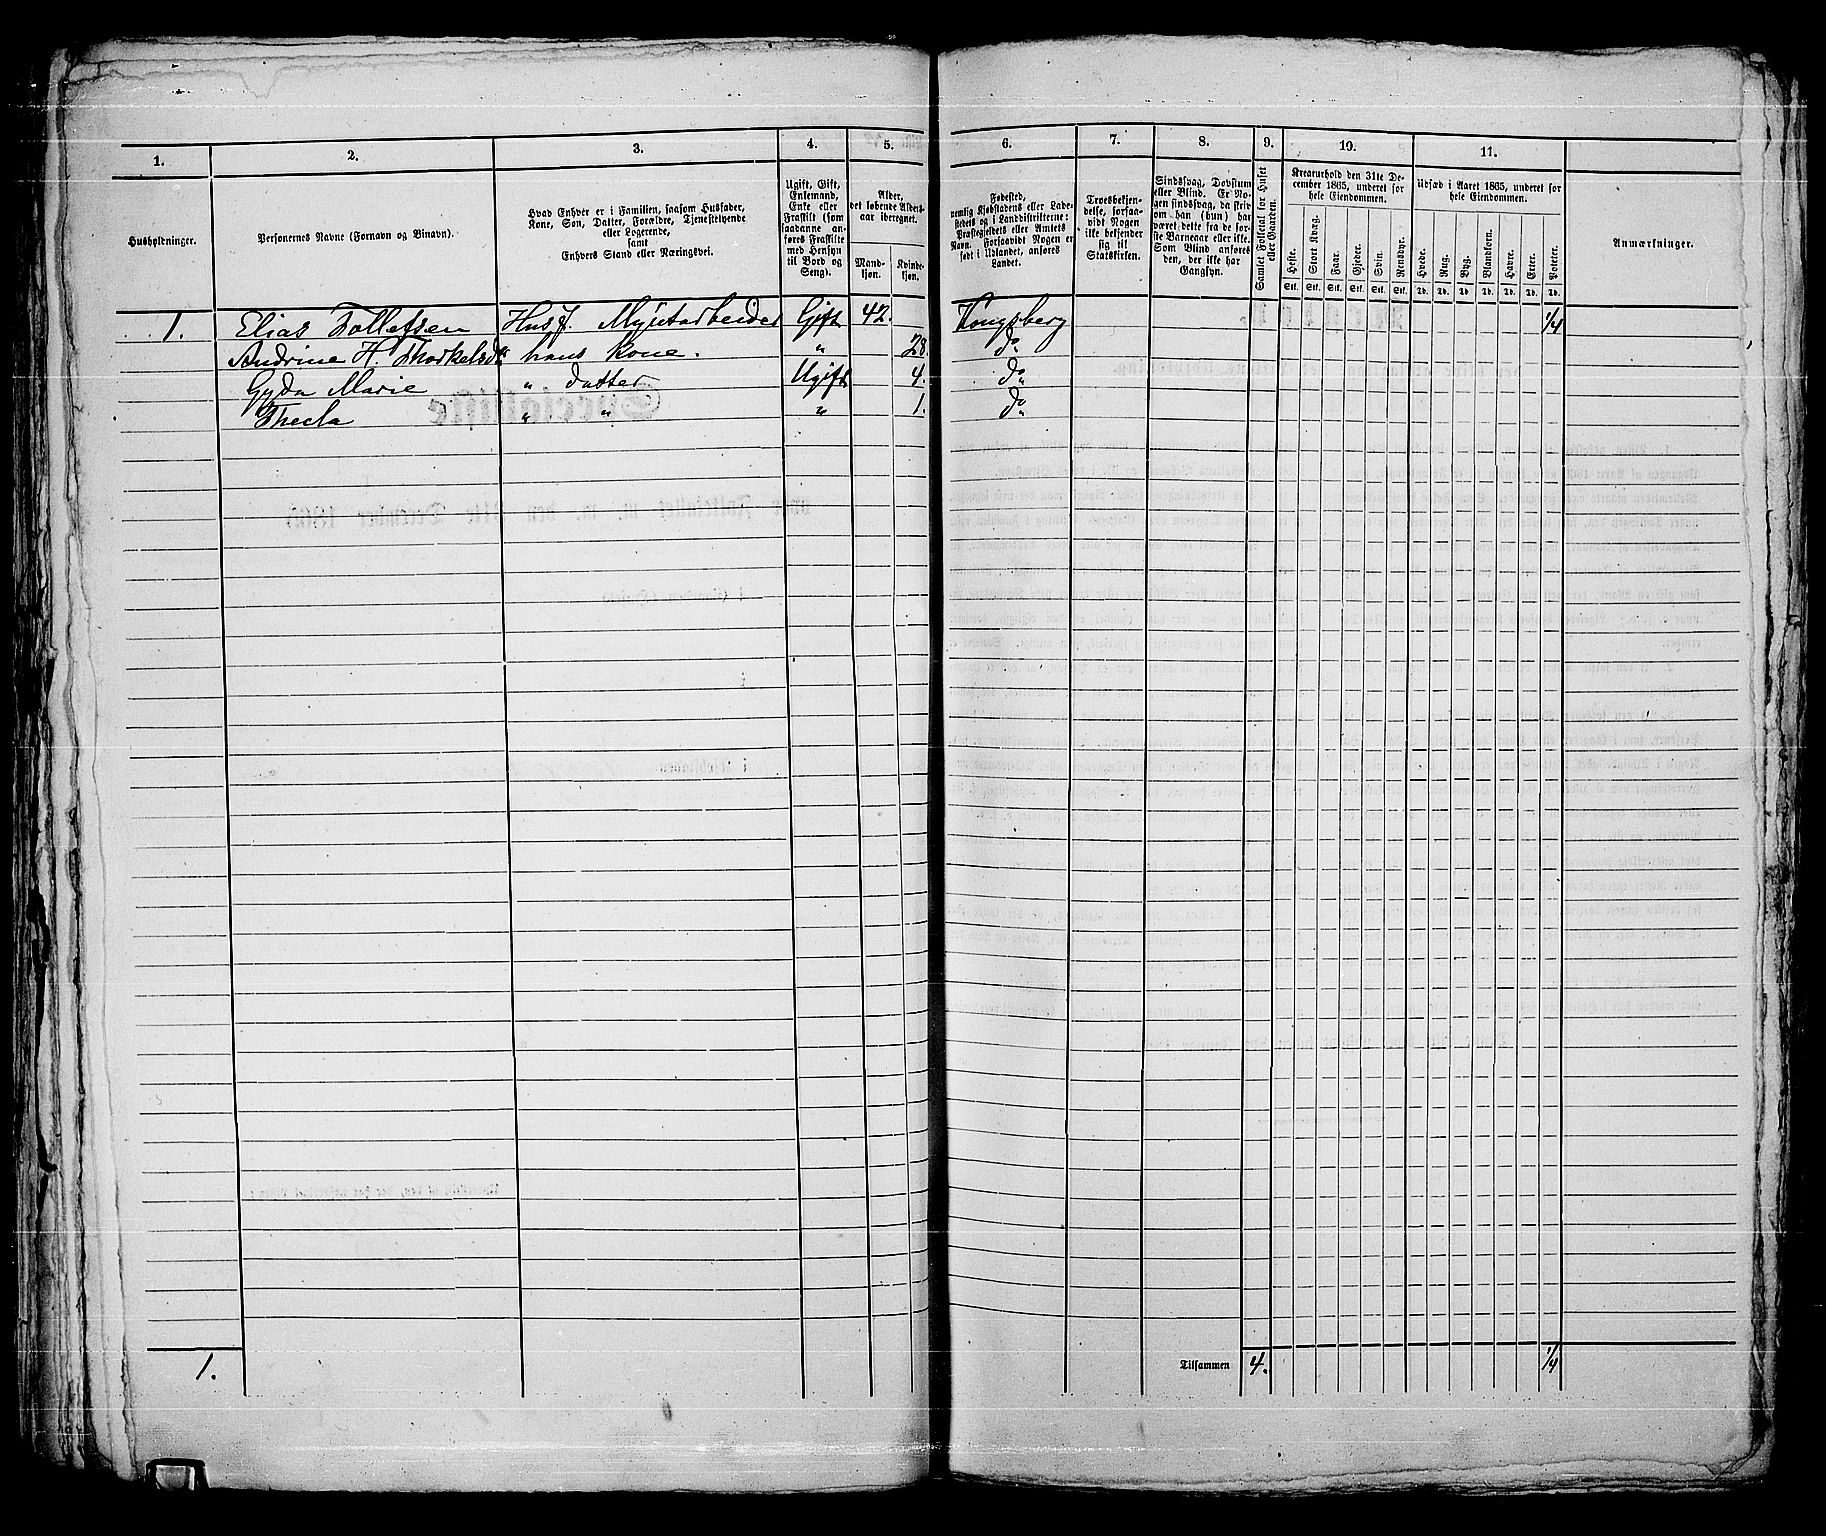 1. 2. 3. 4. 5. 6. 7. 8. 9. 10. 11.
Husholdninger.
Personernes Navne (Fornavn og Binavn).
Hvad Enhver er i Familien, saasom Husfader,
Kone, Søn, Datter, Forældre, Tjenestetyende
eller Logerende,
samt
Enhvers Stand eller Næringsvei.
Ugift, Gift,
Enkemand,
Enke eller
Fraskilt (som
saadanne an-
føres Fraskilte
med Hensyn
til Bord og
Seng).
Alder,
det løbende Alders-
aar iberegnet.
Mand-
kjøn.
Kvinde-
kjøn.
Fødested,
nemlig Kjøbstadens eller Lade-
stedets og i Landdistrikterne:
Præstegjeldets eller Amtets
Navn. Forsaavidt Nogen er
født i Udlandet, anføres
Landet.
Troesbekjen-
delse, forsaa-
vidt Nogen
ikke bekjender
sig til
Statskirken.
Sindssvag, Døvstum
eller Blind. Er No-
gen sindssvag, da skriv
om han (hun) har
været dette fra de før-
ste Barneaar eller ikke.
Som Blind anføres
den, der ikke har
Gangsyn.
Samlet Folketal for Huset
eller Gaarden.
Kreaturhold den 31te De-
cember 1865, underet for
hele Eiendommen.
Heste. Stort Kvæg. Faar. Gjeder. Svin. Rensdyr.
Stk. Stk. Stk. Stk. Stk. Stk.
Udsæd i Aaret 1865, underet for
hele Eiendommen.
Hvede. Rug. Byg. Blandkorn. Havre. Erter. Poteter.
Td. Td. Td. Td. Td. Td. Td.
Anmærkninger.
1. Elias Tollefsen Husf. Myntarbeider Gift 42. Kongsberg 1/4
Andrine H. Thorkelsdr hans Kone. " 28. do
Gyda Marie " datter Ugift 4. do
Thecla " " " 1. do
1. Tilsammen 4. 1/4